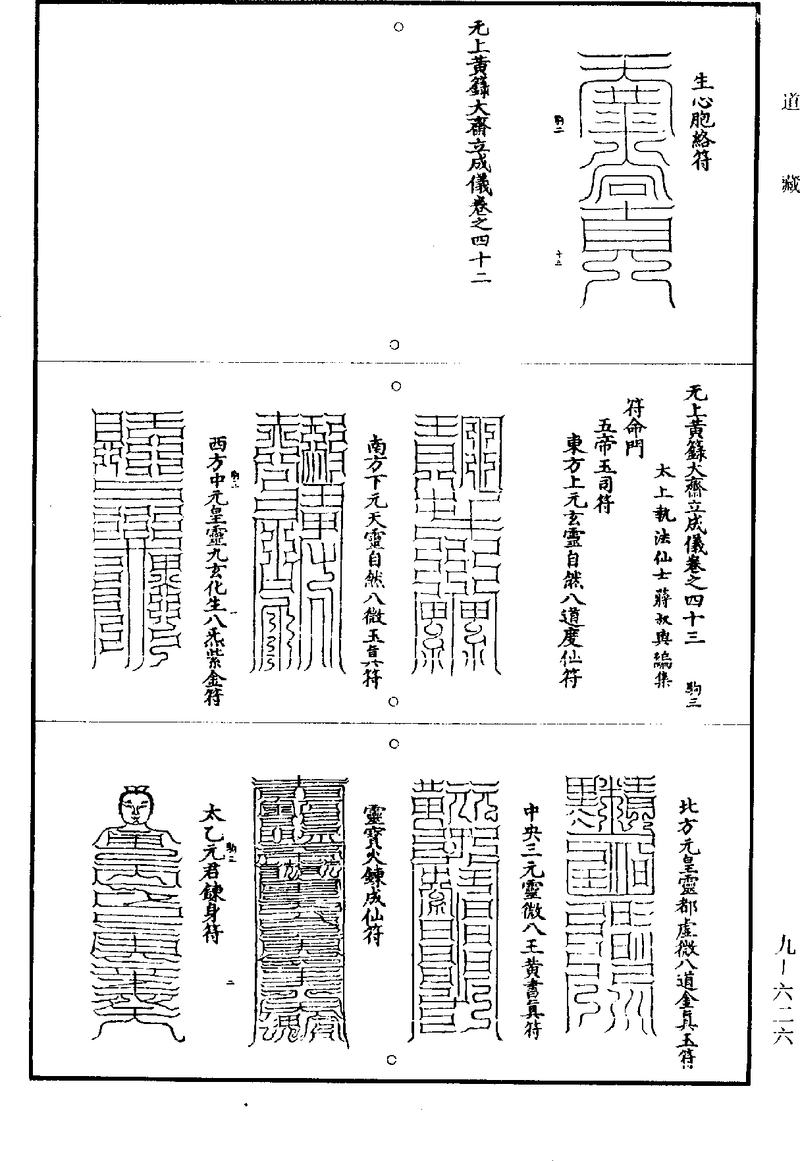 道藏
生心胞絡符
駒二
十二
无上黃籙大齋立成儀卷之四十二
无上黃籙大齋立成儀卷之四十三
駒三
太上執法仙士蔣叔輿編集
符命門
五帝玉司符
東方上元玄靈自然八道度仙符
南方下元天靈自然八微玉真符
西方中元皇靈九玄化生八炁紫金符
北方元皇靈都虛微八道金真玉符
中央三元靈微八王黃書真符
靈寶火鍊成仙符
太乙元君鍊身符
駒三
二
九—六二六